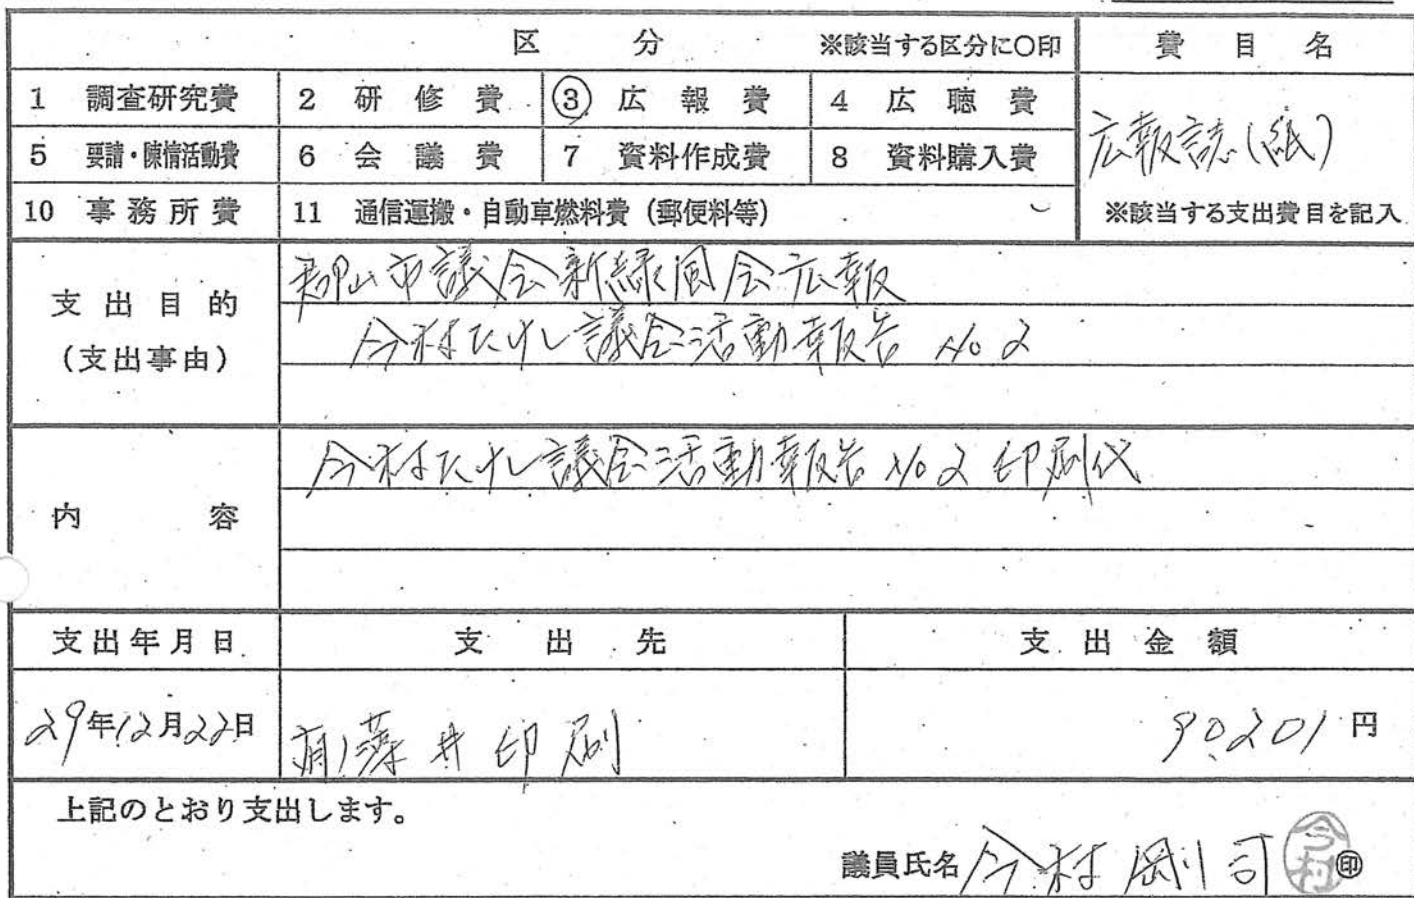 区 分 ※該当する区分に○印 費 目 名
1 調査研究費 2 研 修 費 ③ 広 報 費 4 広 聴 費
広報誌(紙)
5 要請・陳情活動費 6 会 議 費 7 資料作成費 8 資料購入費
10 事務所費 11 通信運搬・自動車燃料費(郵便料等) ※該当する支出費目を記入
支出目的
(支出事由)
郡山市議会新緑風会広報
今村たけし議会活動報告 No2
内 容
今村たけし議会活動報告 No2 印刷代
支出年月日 支 出 先 支 出 金 額
29年12月22日 藤井印刷 90201円
上記のとおり支出します。
議員氏名 今村剛司 ㊞
今村